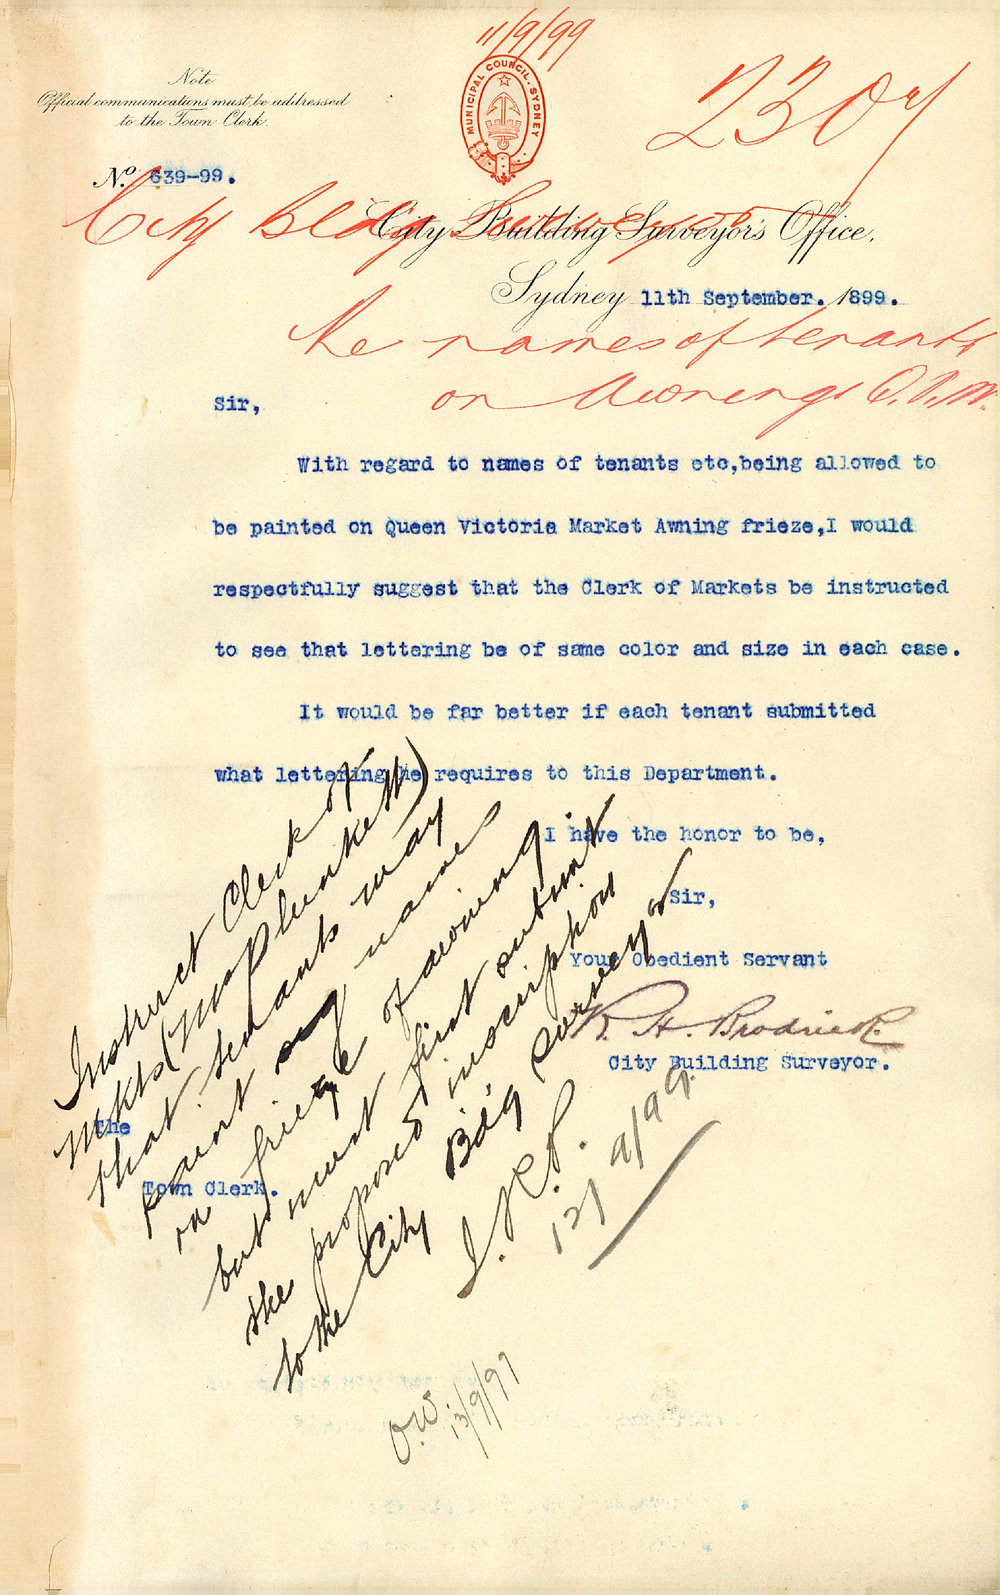 11/9/99
Note
Official communications must be addressed
to the Town Clerk.
MUNICIPAL COUNCIL. SYDNEY
2307
No. 639-99.
City Bldg Surveyor
City Building Surveyor's Office,
Sydney 11th September. 1899.
Re names of tenants
on Awnings Q.V.M.
Sir,
With regard to names of tenants etc,being allowed to
be painted on Queen Victoria Market Awning frieze,I would
respectfully suggest that the Clerk of Markets be instructed
to see that lettering be of same color and size in each case.
It would be far better if each tenant submitted
what lettering he requires to this Department.
I have the honor to be,
Sir,
Your Obedient Servant
R. H. Brodrick.
City Building Surveyor.
The
Town Clerk.
Instruct Clerk of
Mkts (Mr Plunkett)
that tenants may
paint names
on frieze of awning
but must first submit
the proposed inscription
to the City Bdg Surveyor
12/9/99.
O.W. 13/9/99